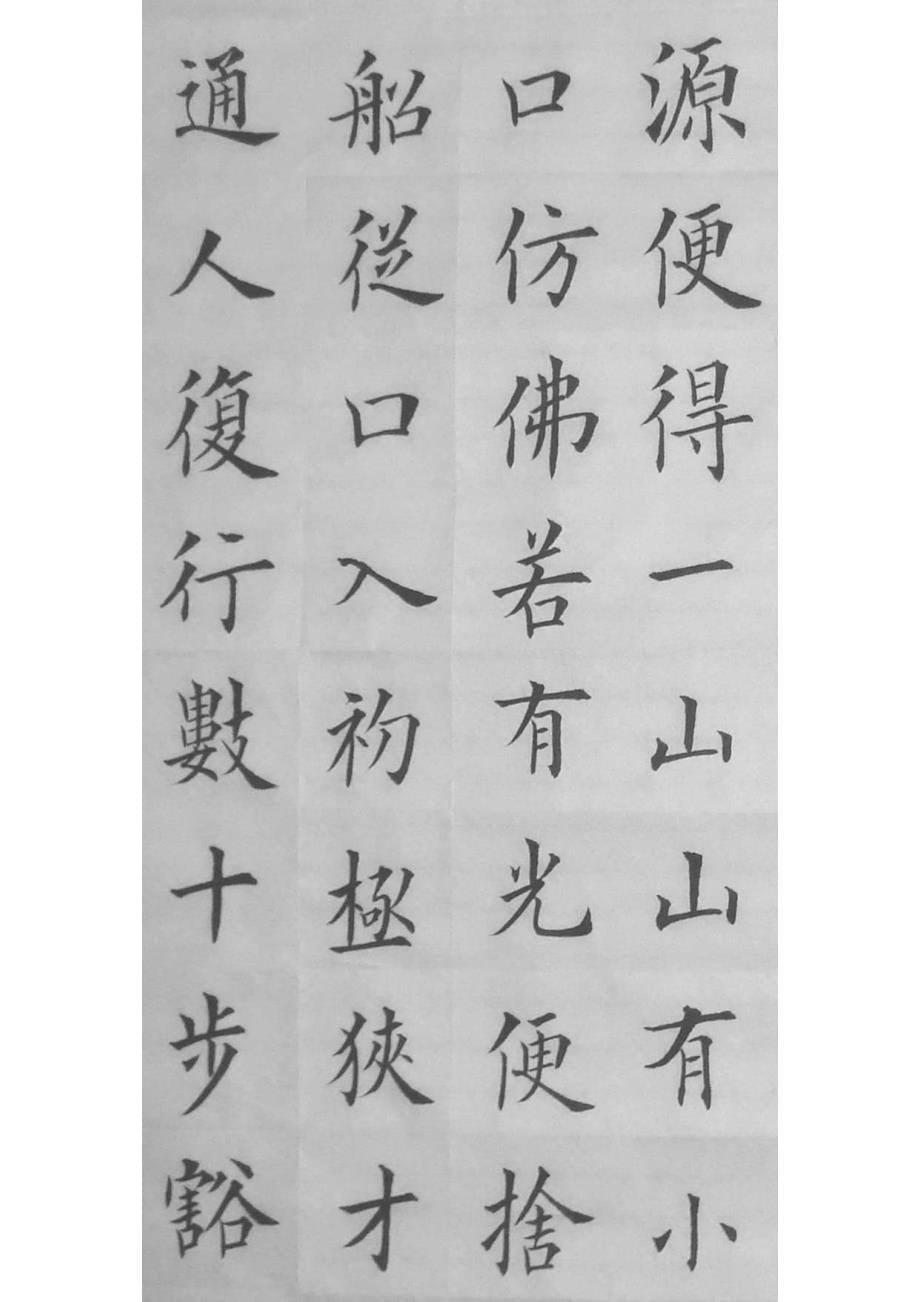 源便得一山山有小
口仿佛若有光便捨
船從口入初極狹才
通人復行數十步豁